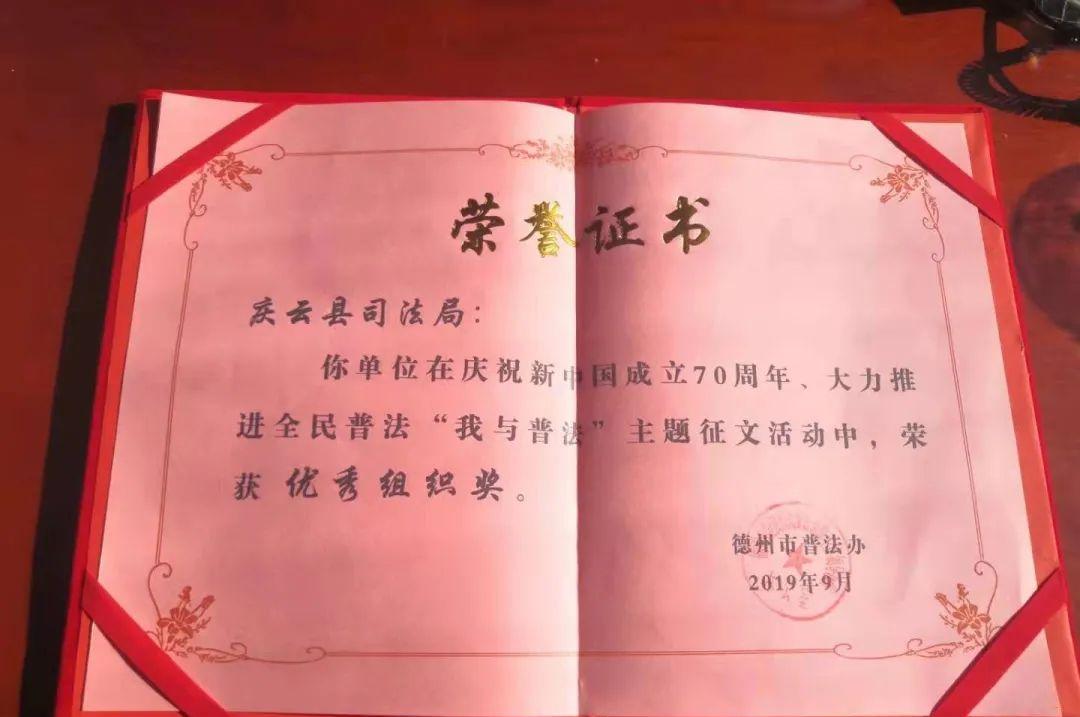 荣誉证书
庆云县司法局：
你单位在庆祝新中国成立70周年、大力推
进全民普法“我与普法”主题征文活动中，荣
获 优秀组织奖。
德州市普法办
2019年9月